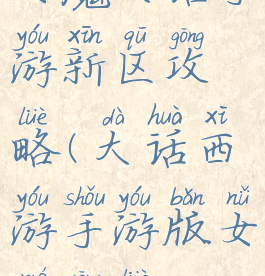 yóu xīn qū gōng
游新区攻
lüè dà huà xī
略(大话西
yóu shǒu yóu bǎn nǚ
游手游版女